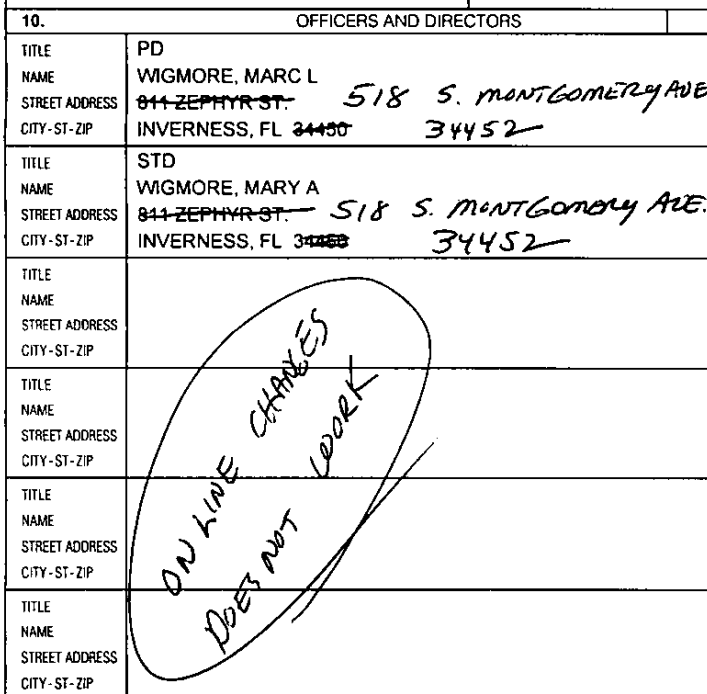 10. OFFICERS AND DIRECTORS
TITLE PD
NAME WIGMORE, MARC L
STREET ADDRESS 811 ZEPHYR ST. 518 S. MONTGOMERY AVE
CITY-ST-ZIP INVERNESS, FL 34450 34452
TITLE STD
NAME WIGMORE, MARY A
STREET ADDRESS 811 ZEPHYR ST. 518 S. MONTGOMERY AVE.
CITY-ST-ZIP INVERNESS, FL 34450 34452
TITLE
NAME
STREET ADDRESS
CITY-ST-ZIP
TITLE
NAME
STREET ADDRESS
CITY-ST-ZIP
TITLE
NAME
STREET ADDRESS
CITY-ST-ZIP
TITLE
NAME
STREET ADDRESS
CITY-ST-ZIP
ON LINE CHANGES
DOES NOT WORK